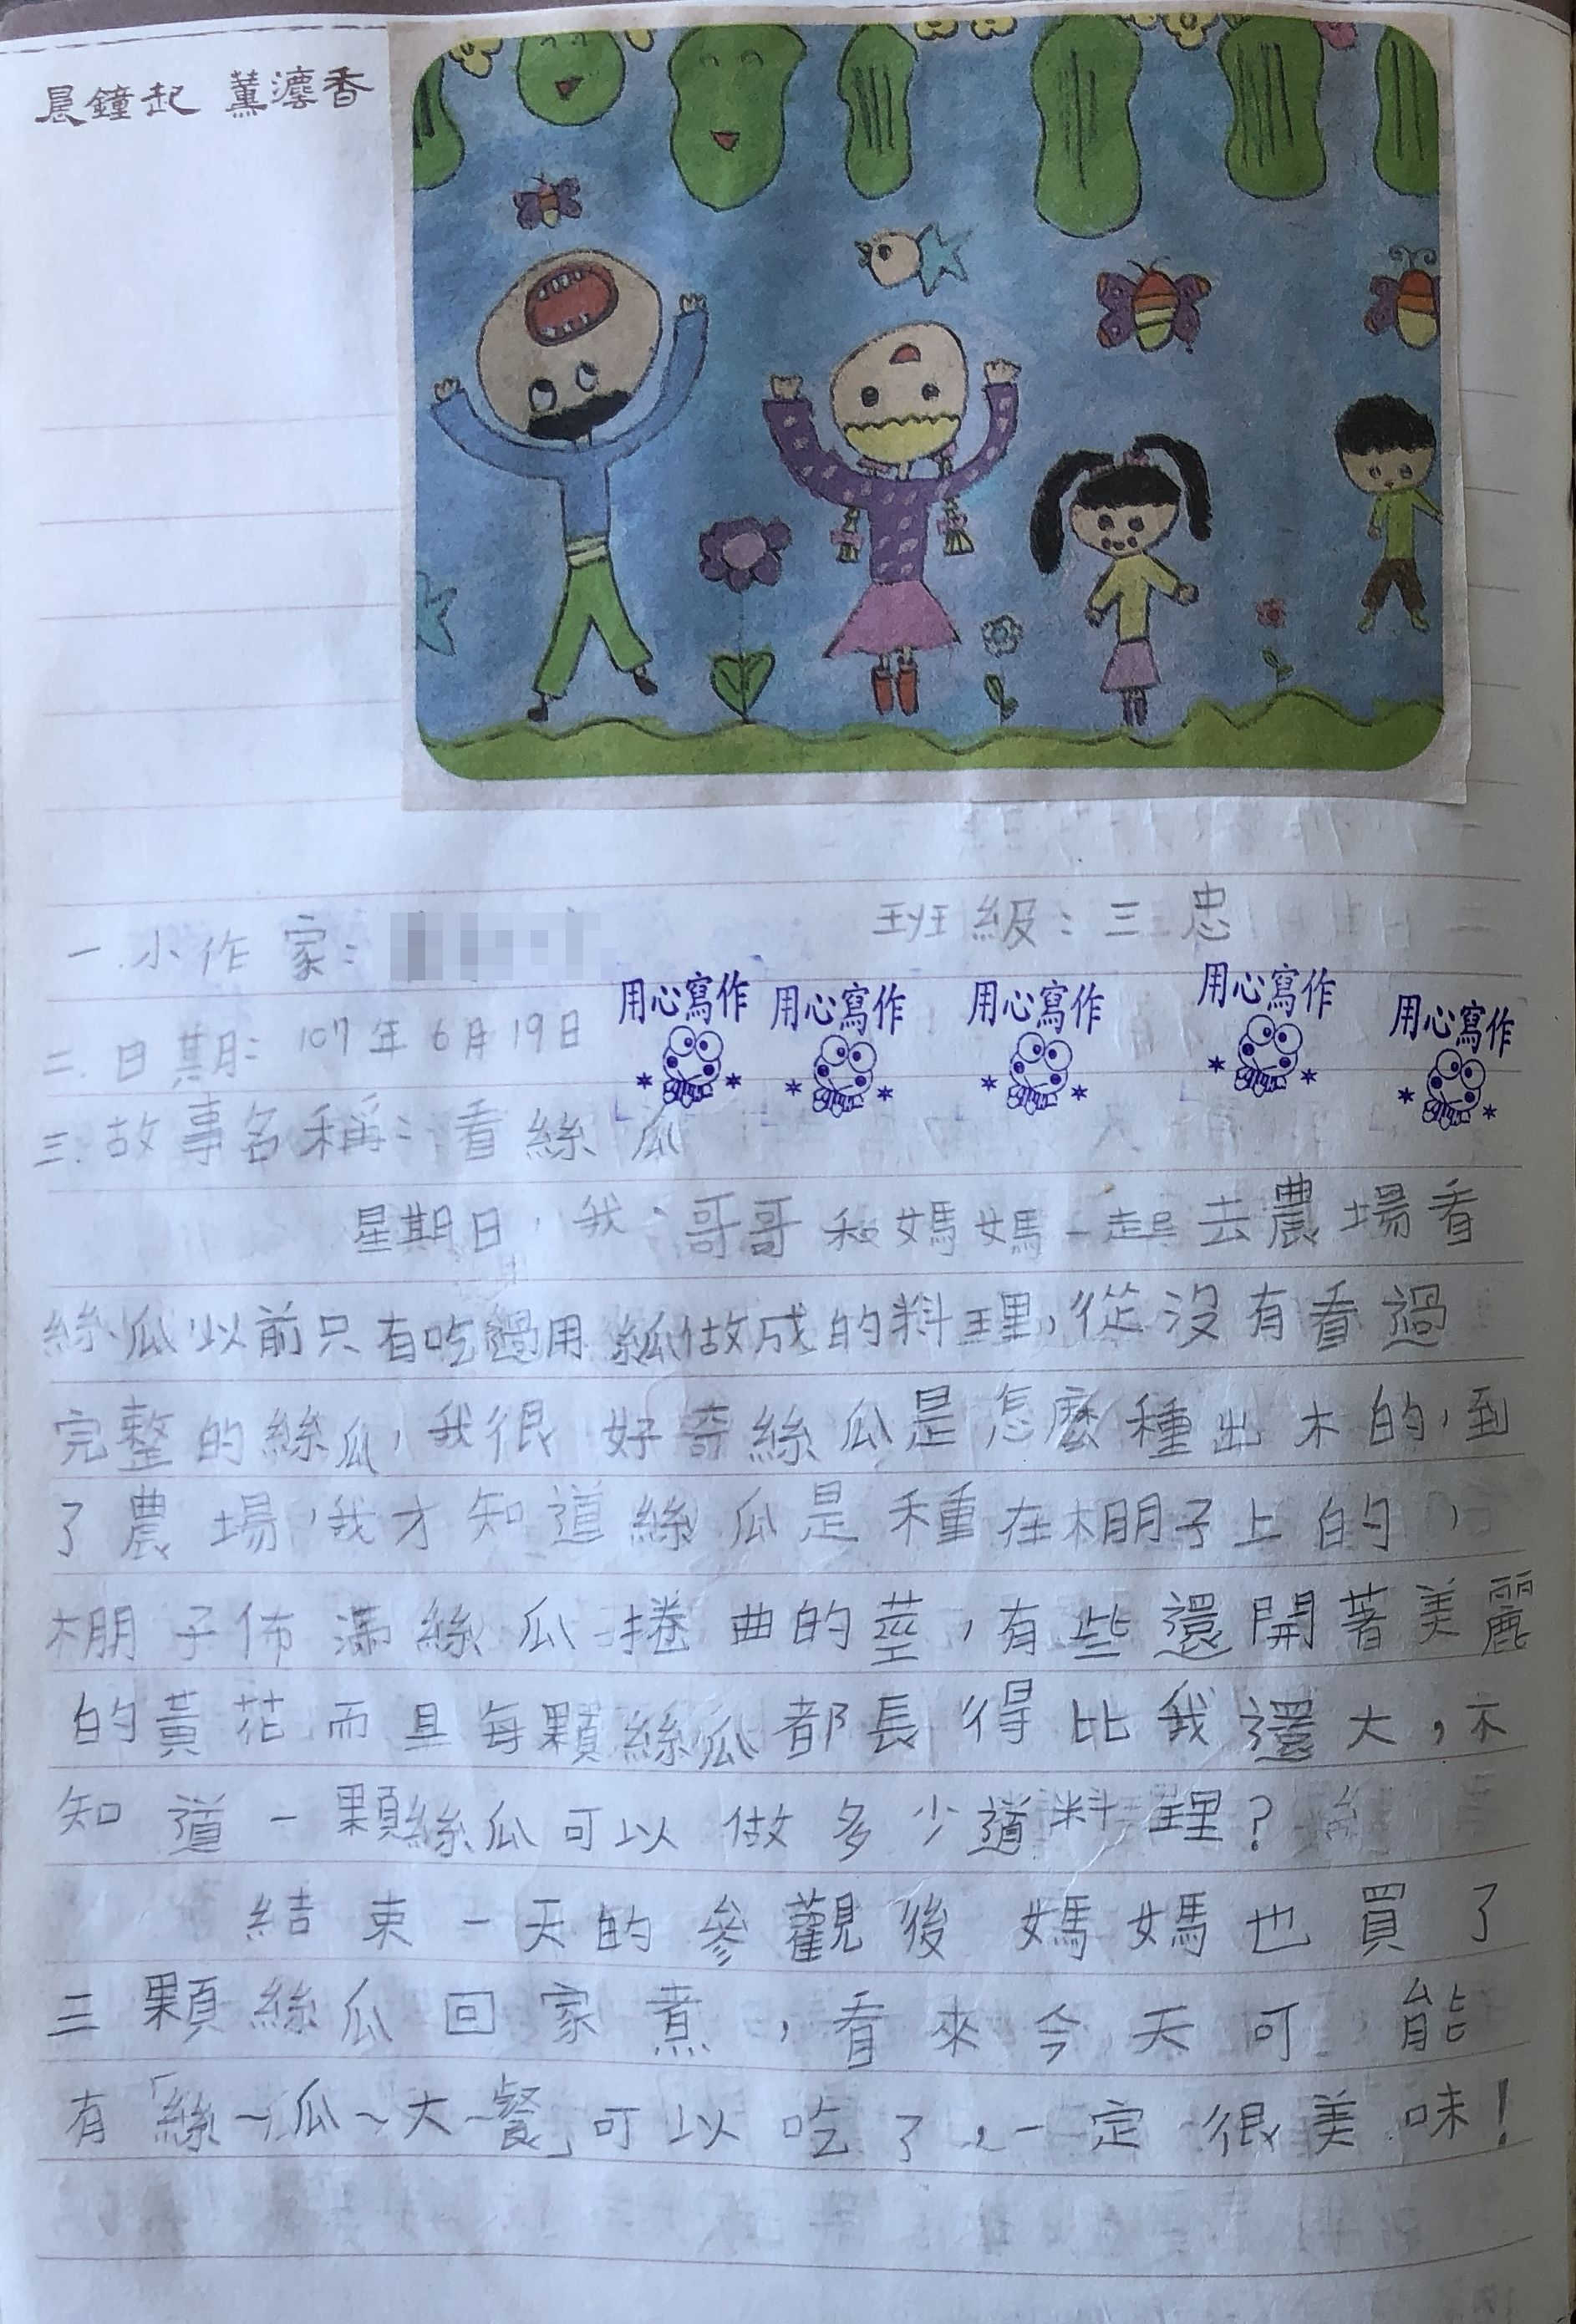 晨鐘起 薰瀀香
一.小作家：
班級：三忠
用心寫作
用心寫作
用心寫作
用心寫作
用心寫作
二.日期：107年6月19日
三.故事名稱：看絲瓜
星期日，我、哥哥和媽媽一起去農場看
絲瓜以前只有吃過用絲瓜做成的料理，從沒有看過
完整的絲瓜，我很好奇絲瓜是怎麼種出木的，到
了農場，我才知道絲瓜是種在棚子上的，
棚子佈滿絲瓜捲曲的莖，有些還開著美麗
的黃花而且每顆絲瓜都長得比我還大，不
知道一顆絲瓜可以做多少道料理？
結束一天的參觀後媽媽也買了
三顆絲瓜回家煮，看來今天可能
有「絲～瓜～大～餐」可以吃了，一定很美味！